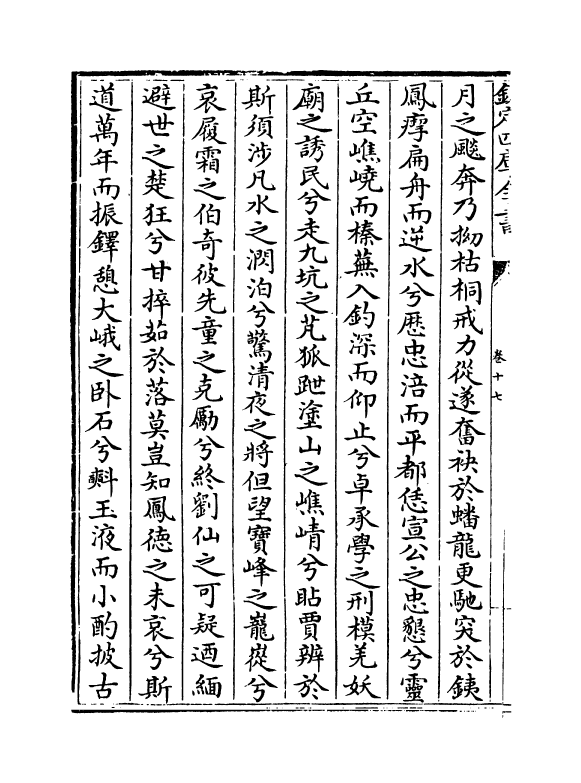 欽定四庫全書
卷十七
月之飈奔乃拗枯桐戒力從遂奮袂於蟠龍更馳突於銕
鳳㾕扁舟而逆水兮歴忠涪而平都恁宣公之忠懇兮靈
丘空嶕嶢而榛蕪入鈞深而仰止兮卓承學之刑模羌妖
廟之誘民兮走九坑之芃狐跐塗山之嶕崝兮貼賈辨於
斯須涉凡水之濶泊兮驚清夜之將但望寶峰之巃嵸兮
哀履霜之伯奇彼先童之克勵兮終劉仙之可疑迺緬
避世之楚狂兮甘捽茹於落莫豈知鳳德之未衰兮斯
道萬年而振鐸憩大峨之卧石兮㪺玉液而小酌披古